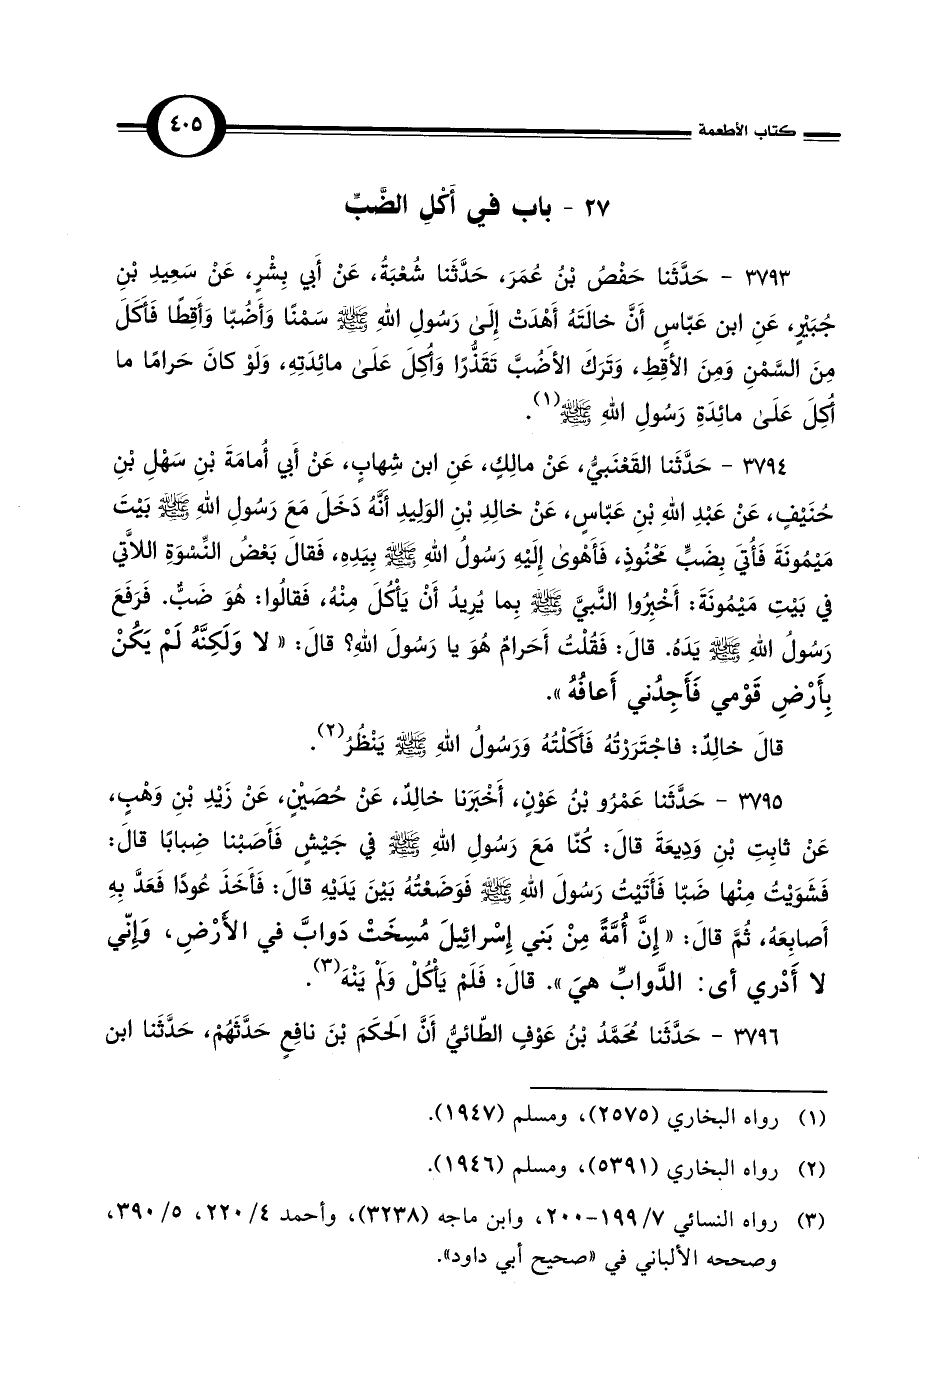 كتاب الأطعمة ٤٠٥
٢٧ - باب في أَكْلِ الضَّبِّ
٣٧٩٣ - حَدَّثَنا حَفْصُ بْنُ عُمَرَ، حَدَّثَنا شُعْبَةُ، عَنْ أَبي بِشْرٍ، عَنْ سَعِيدِ بْنِ
جُبَيْرٍ، عَنِ ابن عَبّاسٍ أَنَّ خالَتَهُ أَهْدَتْ إِلَىٰ رَسُولِ اللهِ ﷺ سَمْنًا وَأَضُبًّا وَأَقِطًا فَأَكَلَ
مِنَ السَّمْنِ وَمِنَ الأَقِطِ، وَتَرَكَ الأَضُبَّ تَقَذُّرًا وَأُكِلَ عَلَىٰ مائِدَتِهِ، وَلَوْ كانَ حَرامًا ما
أُكِلَ عَلَىٰ مائِدَةِ رَسُولِ اللهِ ﷺ(١).
٣٧٩٤ - حَدَّثَنا القَعْنَبيُّ، عَنْ مالِكٍ، عَنِ ابن شِهابٍ، عَنْ أَبي أُمامَةَ بْنِ سَهْلِ بْنِ
حُنَيْفٍ، عَنْ عَبْدِ اللهِ بْنِ عَبّاسٍ، عَنْ خالِدِ بْنِ الوَلِيدِ أَنَّهُ دَخَلَ مَعَ رَسُولِ اللهِ ﷺ بَيْتَ
مَيْمُونَةَ فَأُتيَ بِضَبٍّ مَحْنُوذٍ، فَأَهْوىٰ إِلَيْهِ رَسُولُ اللهِ ﷺ بِيَدِهِ، فَقالَ بَعْضُ النِّسْوَةِ اللاَّتي
في بَيْتِ مَيْمُونَةَ: أَخْبِرُوا النَّبيَّ ﷺ بِما يُرِيدُ أَنْ يَأْكُلَ مِنْهُ، فَقالُوا: هُوَ ضَبٌّ. فَرَفَعَ
رَسُولُ اللهِ ﷺ يَدَهُ. قالَ: فَقُلْتُ أَحَرامٌ هُوَ يا رَسُولَ اللهِ؟ قالَ: « لا وَلَكِنَّهُ لَمْ يَكُنْ
بِأَرْضِ قَوْمي فَأَجِدُني أَعافُهُ ».
قالَ خالِدٌ: فاجْتَرَرْتُهُ فَأَكَلْتُهُ وَرَسُولُ اللهِ ﷺ يَنْظُرُ(٢).
٣٧٩٥ - حَدَّثَنا عَمْرُو بْنُ عَوْنٍ، أَخْبَرَنا خالِدٌ، عَنْ حُصَيْنٍ، عَنْ زَيْدِ بْنِ وَهْبٍ،
عَنْ ثابِتِ بْنِ وَدِيعَةَ قالَ: كُنّا مَعَ رَسُولِ اللهِ ﷺ في جَيْشٍ فَأَصَبْنا ضِبابًا قالَ:
فَشَوَيْتُ مِنْها ضَبًّا فَأَتَيْتُ رَسُولَ اللهِ ﷺ فَوَضَعْتُهُ بَيْنَ يَدَيْهِ قالَ: فَأَخَذَ عُودًا فَعَدَّ بِهِ
أَصابِعَهُ، ثُمَّ قالَ: « إِنَّ أُمَّةً مِنْ بَني إِسْرائِيلَ مُسِخَتْ دَوابَّ في الأَرْضِ، وَإِنّي
لا أَدْري أى: الدَّوابِّ هيَ ». قالَ: فَلَمْ يَأْكُلْ وَلَمْ يَنْهَ(٣).
٣٧٩٦ - حَدَّثَنا مُحَمَّدُ بْنُ عَوْفٍ الطّائيُّ أَنَّ الحَكَمَ بْنَ نافِعٍ حَدَّثَهُمْ، حَدَّثَنا ابن
(١) رواه البخاري (٢٥٧٥)، ومسلم (١٩٤٧).
(٢) رواه البخاري (٥٣٩١)، ومسلم (١٩٤٦).
(٣) رواه النسائي ٧/ ١٩٩-٢٠٠، وابن ماجه (٣٢٣٨)، وأحمد ٤/ ٢٢٠، ٥/ ٣٩٠،
وصححه الألباني في «صحيح أبي داود».